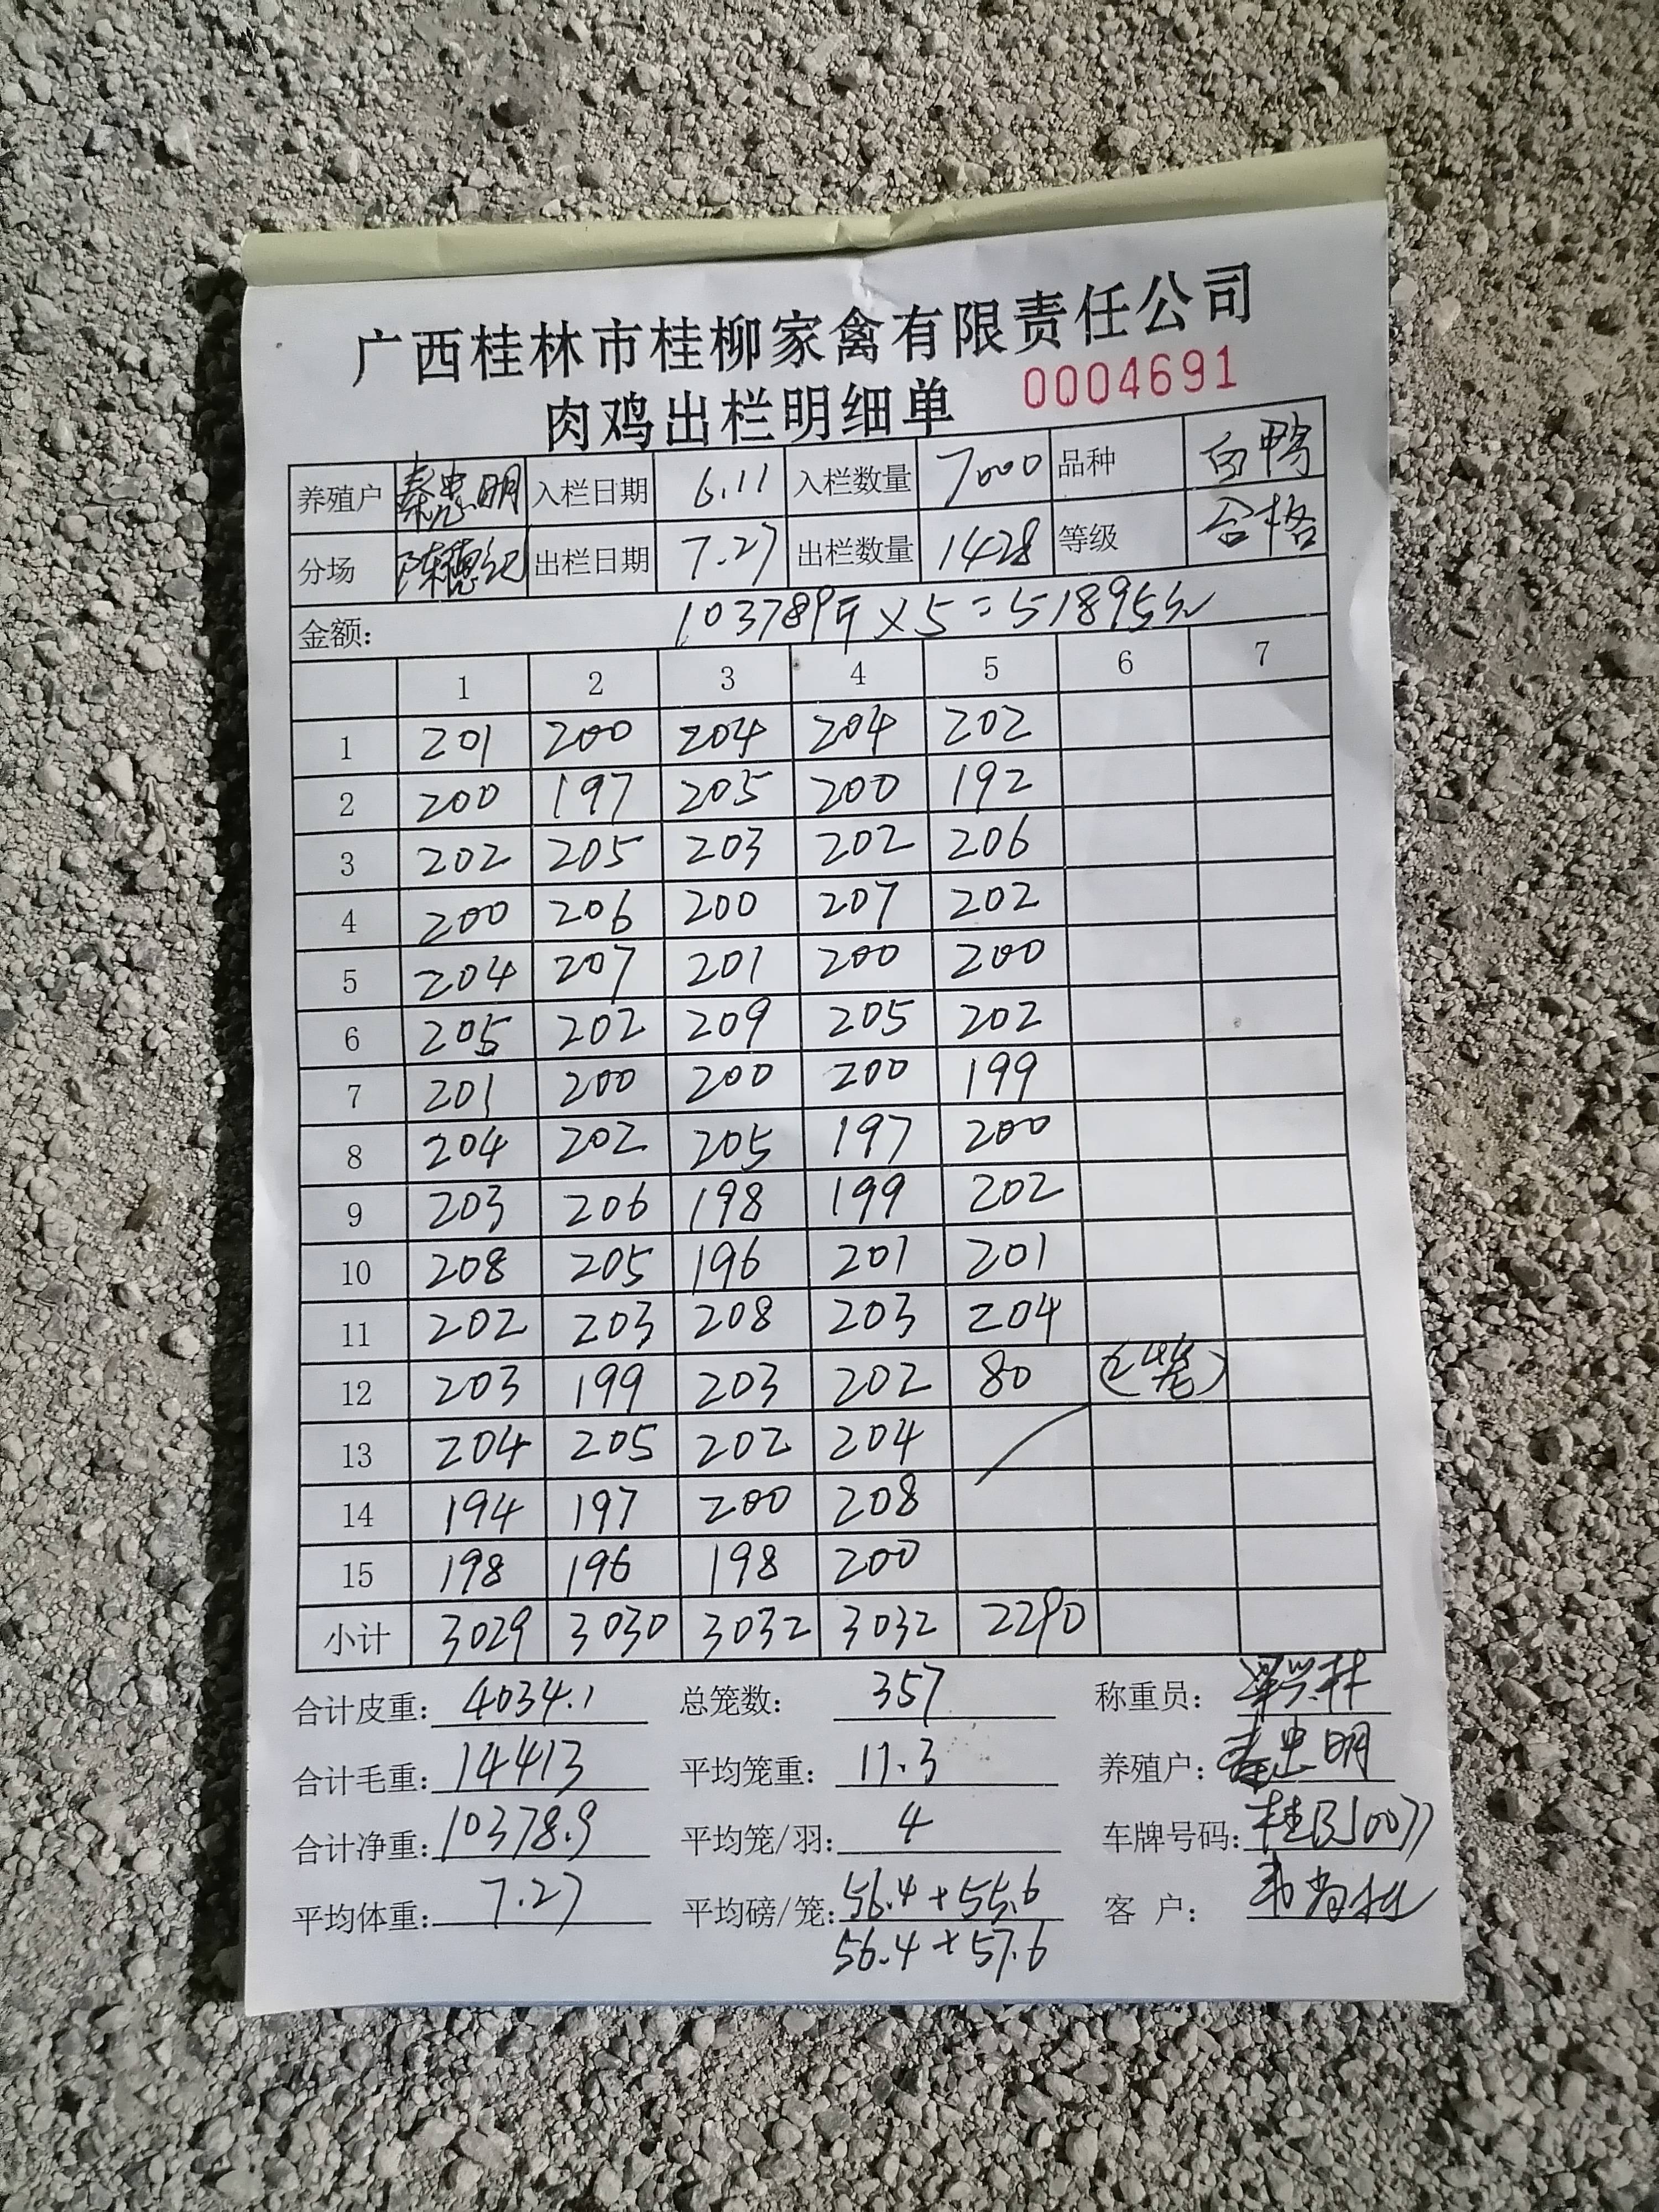 广西桂林市桂柳家禽有限责任公司
肉鸡出栏明细单 0004691
养殖户 秦忠明 入栏日期 6.11 入栏数量 7000 品种 白鸭
分场 陈德纪 出栏日期 7.27 出栏数量 1428 等级 合格
金额: 10378.9斤×5=51895元
1 2 3 4 5 6 7
1 201 200 204 204 202
2 200 197 205 200 192
3 202 205 203 202 206
4 200 206 200 207 202
5 204 207 201 200 200
6 205 202 209 205 202
7 201 200 200 200 199
8 204 202 205 197 200
9 203 206 198 199 202
10 208 205 196 201 201
11 202 203 208 203 204
12 203 199 203 202 80
13 204 205 202 204
14 194 197 200 208
15 198 196 198 200
小计 3029 3030 3032 3032 2290
合计皮重: 4034.1 总笼数: 357 称重员:
合计毛重: 14413 平均笼重: 11.3 养殖户: 秦忠明
合计净重: 10378.9 平均笼/羽: 4 车牌号码:
平均体重: 7.27 平均磅/笼: 56.4+55.6 客户:
56.4+57.6